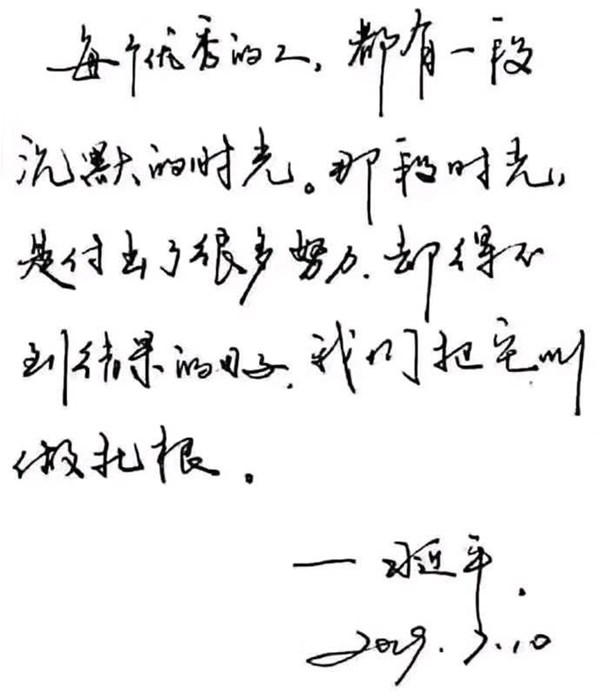 每个优秀的人，都有一段
沉默的时光。那段时光，
是付出了很多努力，却得不
到结果的日子，我们把它叫
做扎根。
— 习近平．
2029.3.10